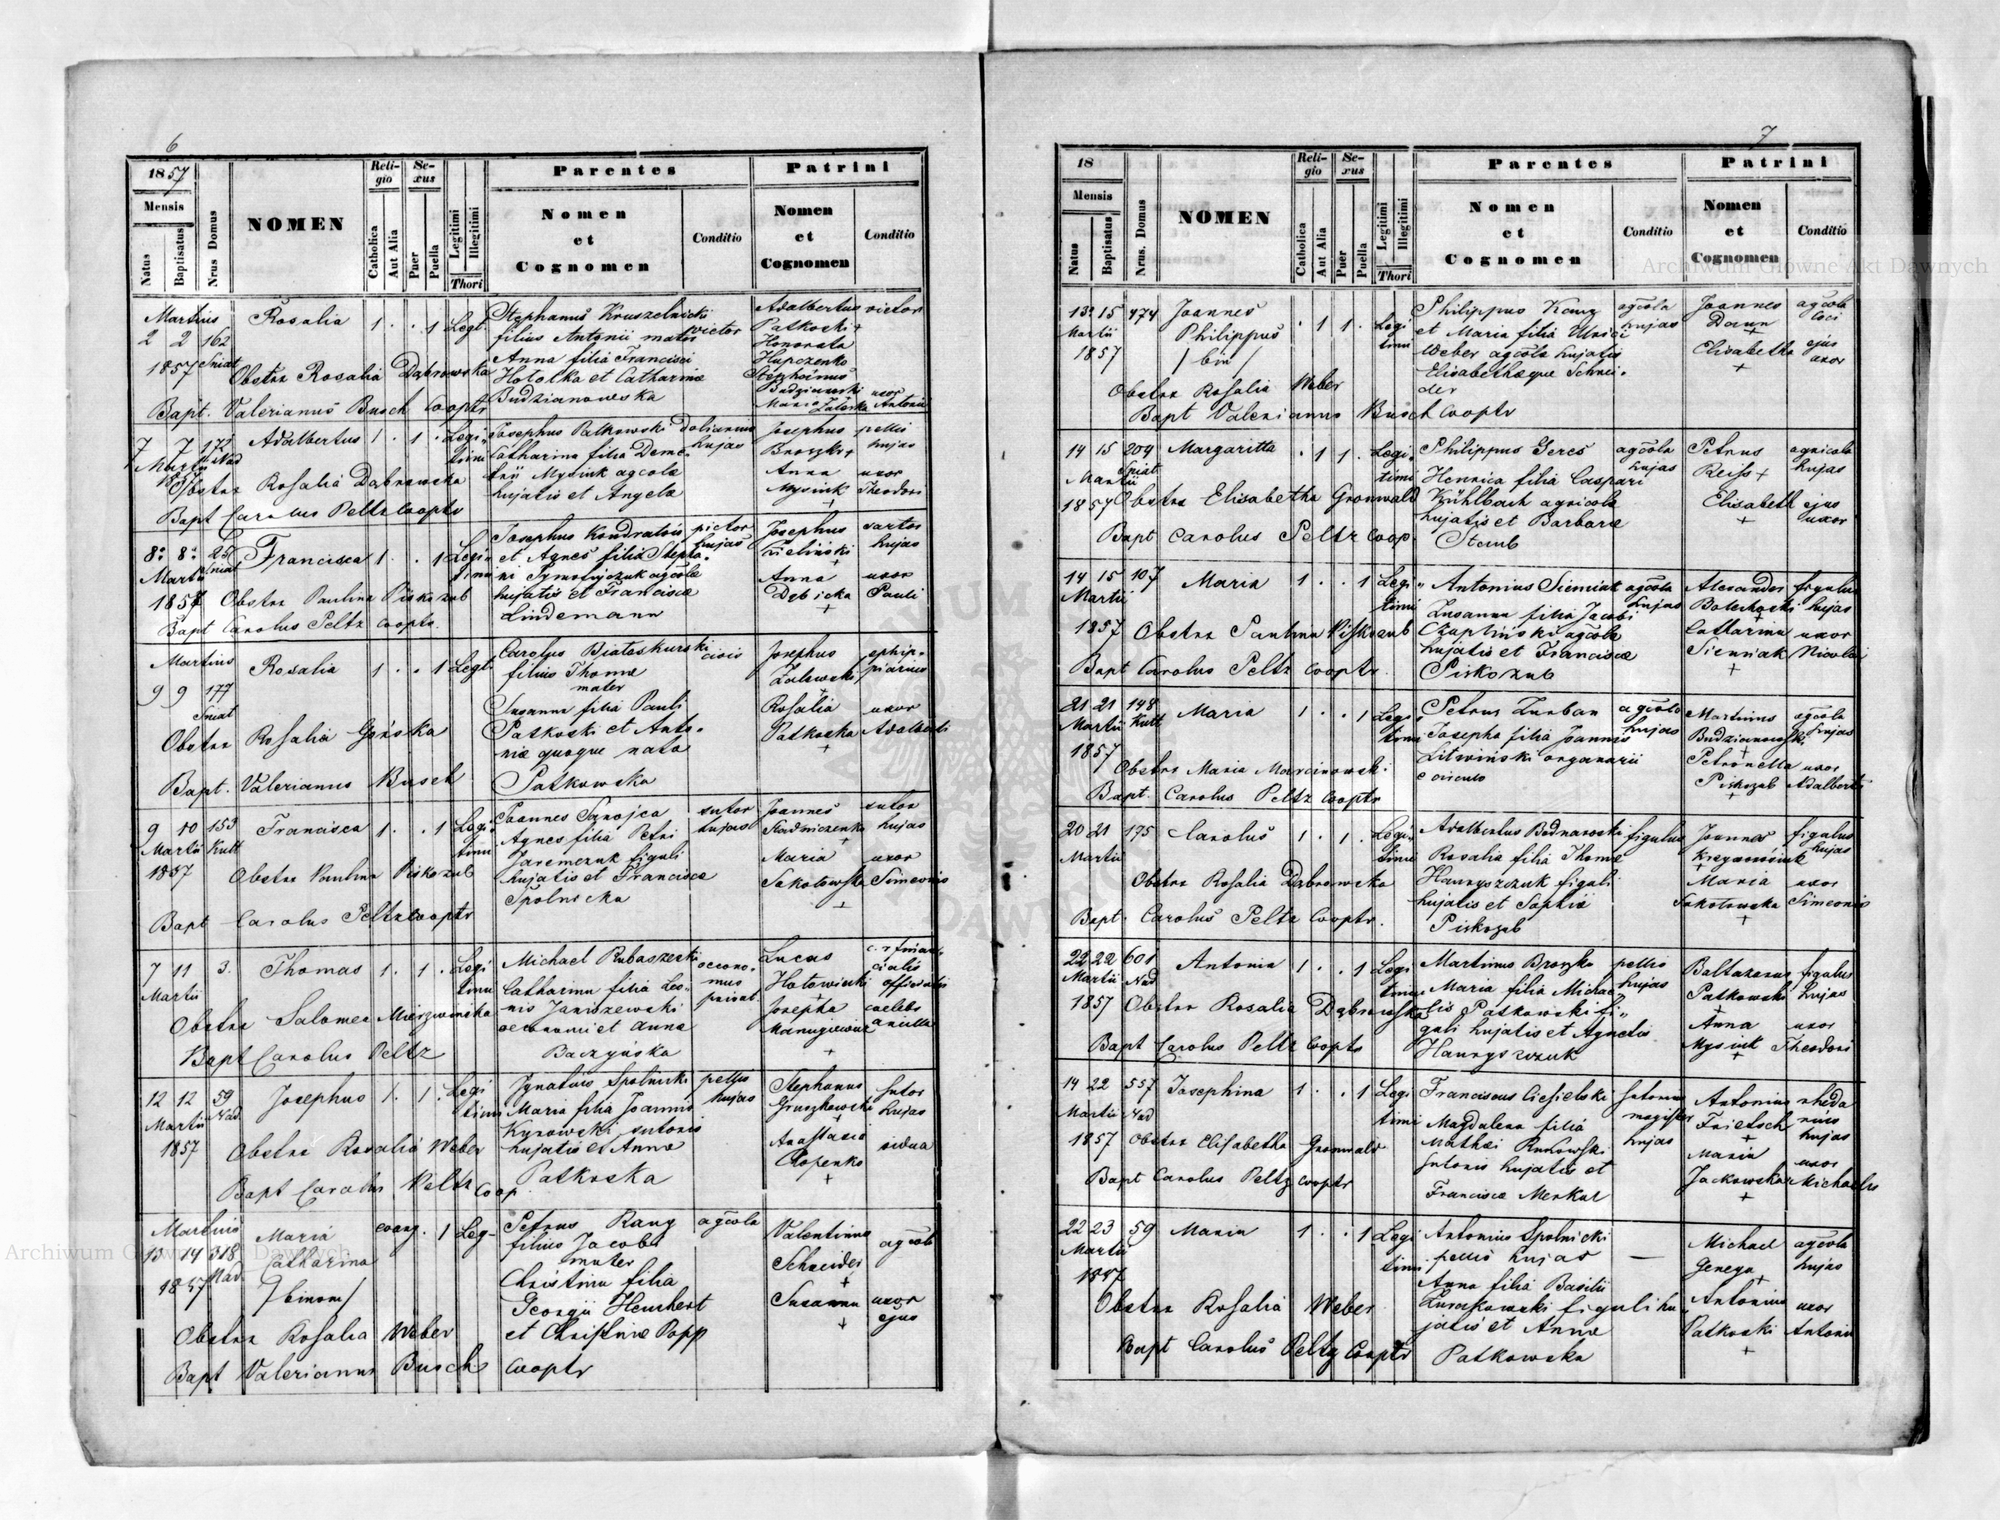 6
1857
Mensis
Natus
Baptisatus
Nrus Domus
NOMEN
Religio
Catholica
Aut Alia
Sexus
Puer
Puella
Legitimi
Illegitimi
Thori
Parentes
Nomen
et
Cognomen
Conditio
Patrini
Nomen
et
Cognomen
Conditio
Martius
2 2 162
1857 Sniat
Rosalia
1 . . 1 Legt.
Stephanus Kruszelnicki
filius Antonii mater
victor
Anna filia Francisci
Hotolka et Catharinæ
Budzianowska
Adalbertus victor
Patkoski +
Honorata
Hupczenko
Stephanus
Budzianoski
Maria Zaleska
uxor
Antonii
Obstrx Rosalia Dąbrowska
Bapt. Valerianus Busch Cooptr
7 7 172
Martii Nad
Adalbertus
1 . 1 . Legitimi
Josephus Patkowski
Catharina filia Demetrii
Mysiuk agcola
hujatis et Angela
hujas
Josephus
Broszko +
Anna
Mysiuk
+
pellis
hujas
uxor
Theodori
Obstrx Rosalia Dąbrowska
Bapt Carolus Peltz Cooptr
8: 8: 251
Martii Sniat
1857
Francisca
1 . . 1 Legitimi
Josephus Kondratowicz
pictor
hujas
et Agnes filia Stephani
Tymofijczuk agcolæ
hujatis et Francisca
Lindemann
Josephus
Zieliński
+
Anna
Dębicka
+
sartor
hujas
uxor
Pauli
Obstrx Paulina Piskozub
Bapt Carolus Peltz Cooptr.
Martius
9 9 177
Sniat
Rosalia
1 . . 1 Legt
Carolus Białoskurski
civis
filius Thomæ
mater
Susanna filia Pauli
Patkoski et Antoniæ
quoque nata
Patkowska
Josephus
Zalewski
+
Rosalia
Patkoska
+
ephippiarius
uxor
Adalberti
Obstrx Rosalia Gorska
Bapt. Valerianus Busch
9 10 153
Martii Kutt
1857
Francisca
1 . . 1 Legitimi
Joannes Sanojca
sutor
hujas
Agnes filia Petri
Jaremczuk figuli
hujatis et Francisca
Spolnicka
Joannes
Stadniczenko
+
Maria
Sokolowska
+
sutor
hujas
uxor
Simeonis
Obstrx Paulina Piskozub
Bapt Carolus Peltz Cooptr
7 11 3.
Martii
Thomas
1 . 1 . Legitimi
Michael Rubaszerski
oeconomus
privat.
Catharina filia Leonis
Janiszewski
oeconomi et Anna
Baczyńska
Lucas
Hołowiński
+
Josepha
Manugiewicz
+
officialis
caelebs
Obstrx Salomea Mierzwinska
Bapt Carolus Peltz
12 12 59
Martii Nad.
1857
Josephus
1 . 1 . Legitimi
Ignatius Spolnicki
pellis
hujas
Maria filia Joannis
Kynowski sutoris
hujatis et Annæ
Patkoska
Stephanus
Gruszkowski
+
Anastasia
Ropenko
+
sutor
hujas
vidua
Obstrx Rosalia Weber
Bapt Carolus Peltz Coop
Martius
13 14 318
1857 Nad.
Maria
Catharina
/binom/
evang. 1 Leg
Petrus Rang
agcola
filius Jacobi
mater
Christina filia
Georgii Heuchert
et Christinæ Popp
Valentinus
Schneider
+
Susanna
+
agcola
uxor
ejus
Obstrx Rosalia Weber
Bapt Valerianus Busch Cooptr
7
18
Mensis
Natus
Baptisatus
Nrus. Domus
NOMEN
Religio
Catholica
Aut Alia
Sexus
Puer
Puella
Legitimi
Illegitimi
Thori
Parentes
Nomen
et
Cognomen
Conditio
Patrini
Nomen
et
Cognomen
Conditio
13 15 474
Martii
1857
Joannes
Philippus
/bin/
. 1 1 . Legitimi
Philippus Kang
agcola
hujas
et Maria filia Ulrici
Weber agcola hujatis
Elisabethæque Schneider
Joannes
Daum
+
Elisabetha
+
agcola
loci
ejus
uxor
Obstrx Rosalia Weber
Bapt Valerianus Busch Cooptr
14 15 209
Martii Sniat
1857
Margaritta
. 1 1 . Legitimi
Philippus Geres
agcola
hujas
Henrica filia Caspari
Kühlbach agricolæ
hujatis et Barbaræ
Staub
Petrus
Reiss +
Elisabeth
+
agricola
hujas
ejus
uxor
Obstrx Elisabetha Gronwald
Bapt Carolus Peltz Coop.
14 15 107
Martii
1857
Maria
1 . . 1 Legitimi
Antonius Sieniak
agcola
hujas
Zusanna filia Jacobi
Czapliński agcolæ
hujatis et Franciscæ
Piskozub
Alexander
+
Catharina
Sieniak
+
figulus
hujas
uxor
Nicolai
Obstrx Paulina Piskozub
Bapt Carolus Peltz Cooptr.
21 21 148
Martii Kutt
1857
Maria
1 . . 1 Legitimi
Petrus Zurban
agcola
hujas
Josepha filia Joannis
Litwiński organarii
e circulo
Martinus
Budzianowski
+
Petronella
Piskozub
+
agcola
hujas
uxor
Adalberti
Obstrx Maria Marcinowski
Bapt. Carolus Peltz Cooptr
20 21 195
Martii
Carolus
1 . 1 . Legitimi
Adalbertus Bednarowski
figulus
Rosalia filia Thomæ
Hawryszczuk figuli
hujatis et Sophiæ
Piskozub
Joannes
+
Maria
Sokolowska
+
figulus
hujas
uxor
Simeonis
Obstrx Rosalia Dąbrowska
Bapt. Carolus Peltz Cooptr.
22 22 601
Martii Nad
1857
Antonia
1 . . 1 Legitimi
Martinus Broszko
pellio
hujas
Maria filia Michaelis
Patkowski figuli
hujatis et Agnetis
Hawryszczuk
Baltazarus
Patkowski
+
Anna
Mysiuk
+
figulus
hujas
uxor
Theodori
Obstrx Rosalia Dąbrowska
Bapt Carolus Peltz Cooptr
14 22 557
Martii Nad
1857
Josephina
1 . . 1 Legitimi
Franciscus Ciesielski
sutorum
magister
hujas
Magdalena filia
Mathæi Rukowski
sutoris hujatis et
Franciscæ Merkar
Antonius
Frietsch
+
Maria
Jackowska
+
rhedarius
hujas
uxor
Michaelis
Obstrx Elisabetha Gronwald
Bapt Carolus Peltz Cooptr
22 23 59
Martii
1857
Maria
1 . . 1 Legitimi
Antonius Spolnicki
pellio hujas
Anna filia Basilii
Zurakowski figuli hujatis
et Annæ
Patkowska
Michael
Genega
+
Antonina
Patkoski
+
agcola
hujas
uxor
Antonii
Obstrx Rosalia Weber
Bapt Carolus Peltz Cooptr
Archiwum Główne Akt Dawnych
Archiwum Główne Akt Dawnych